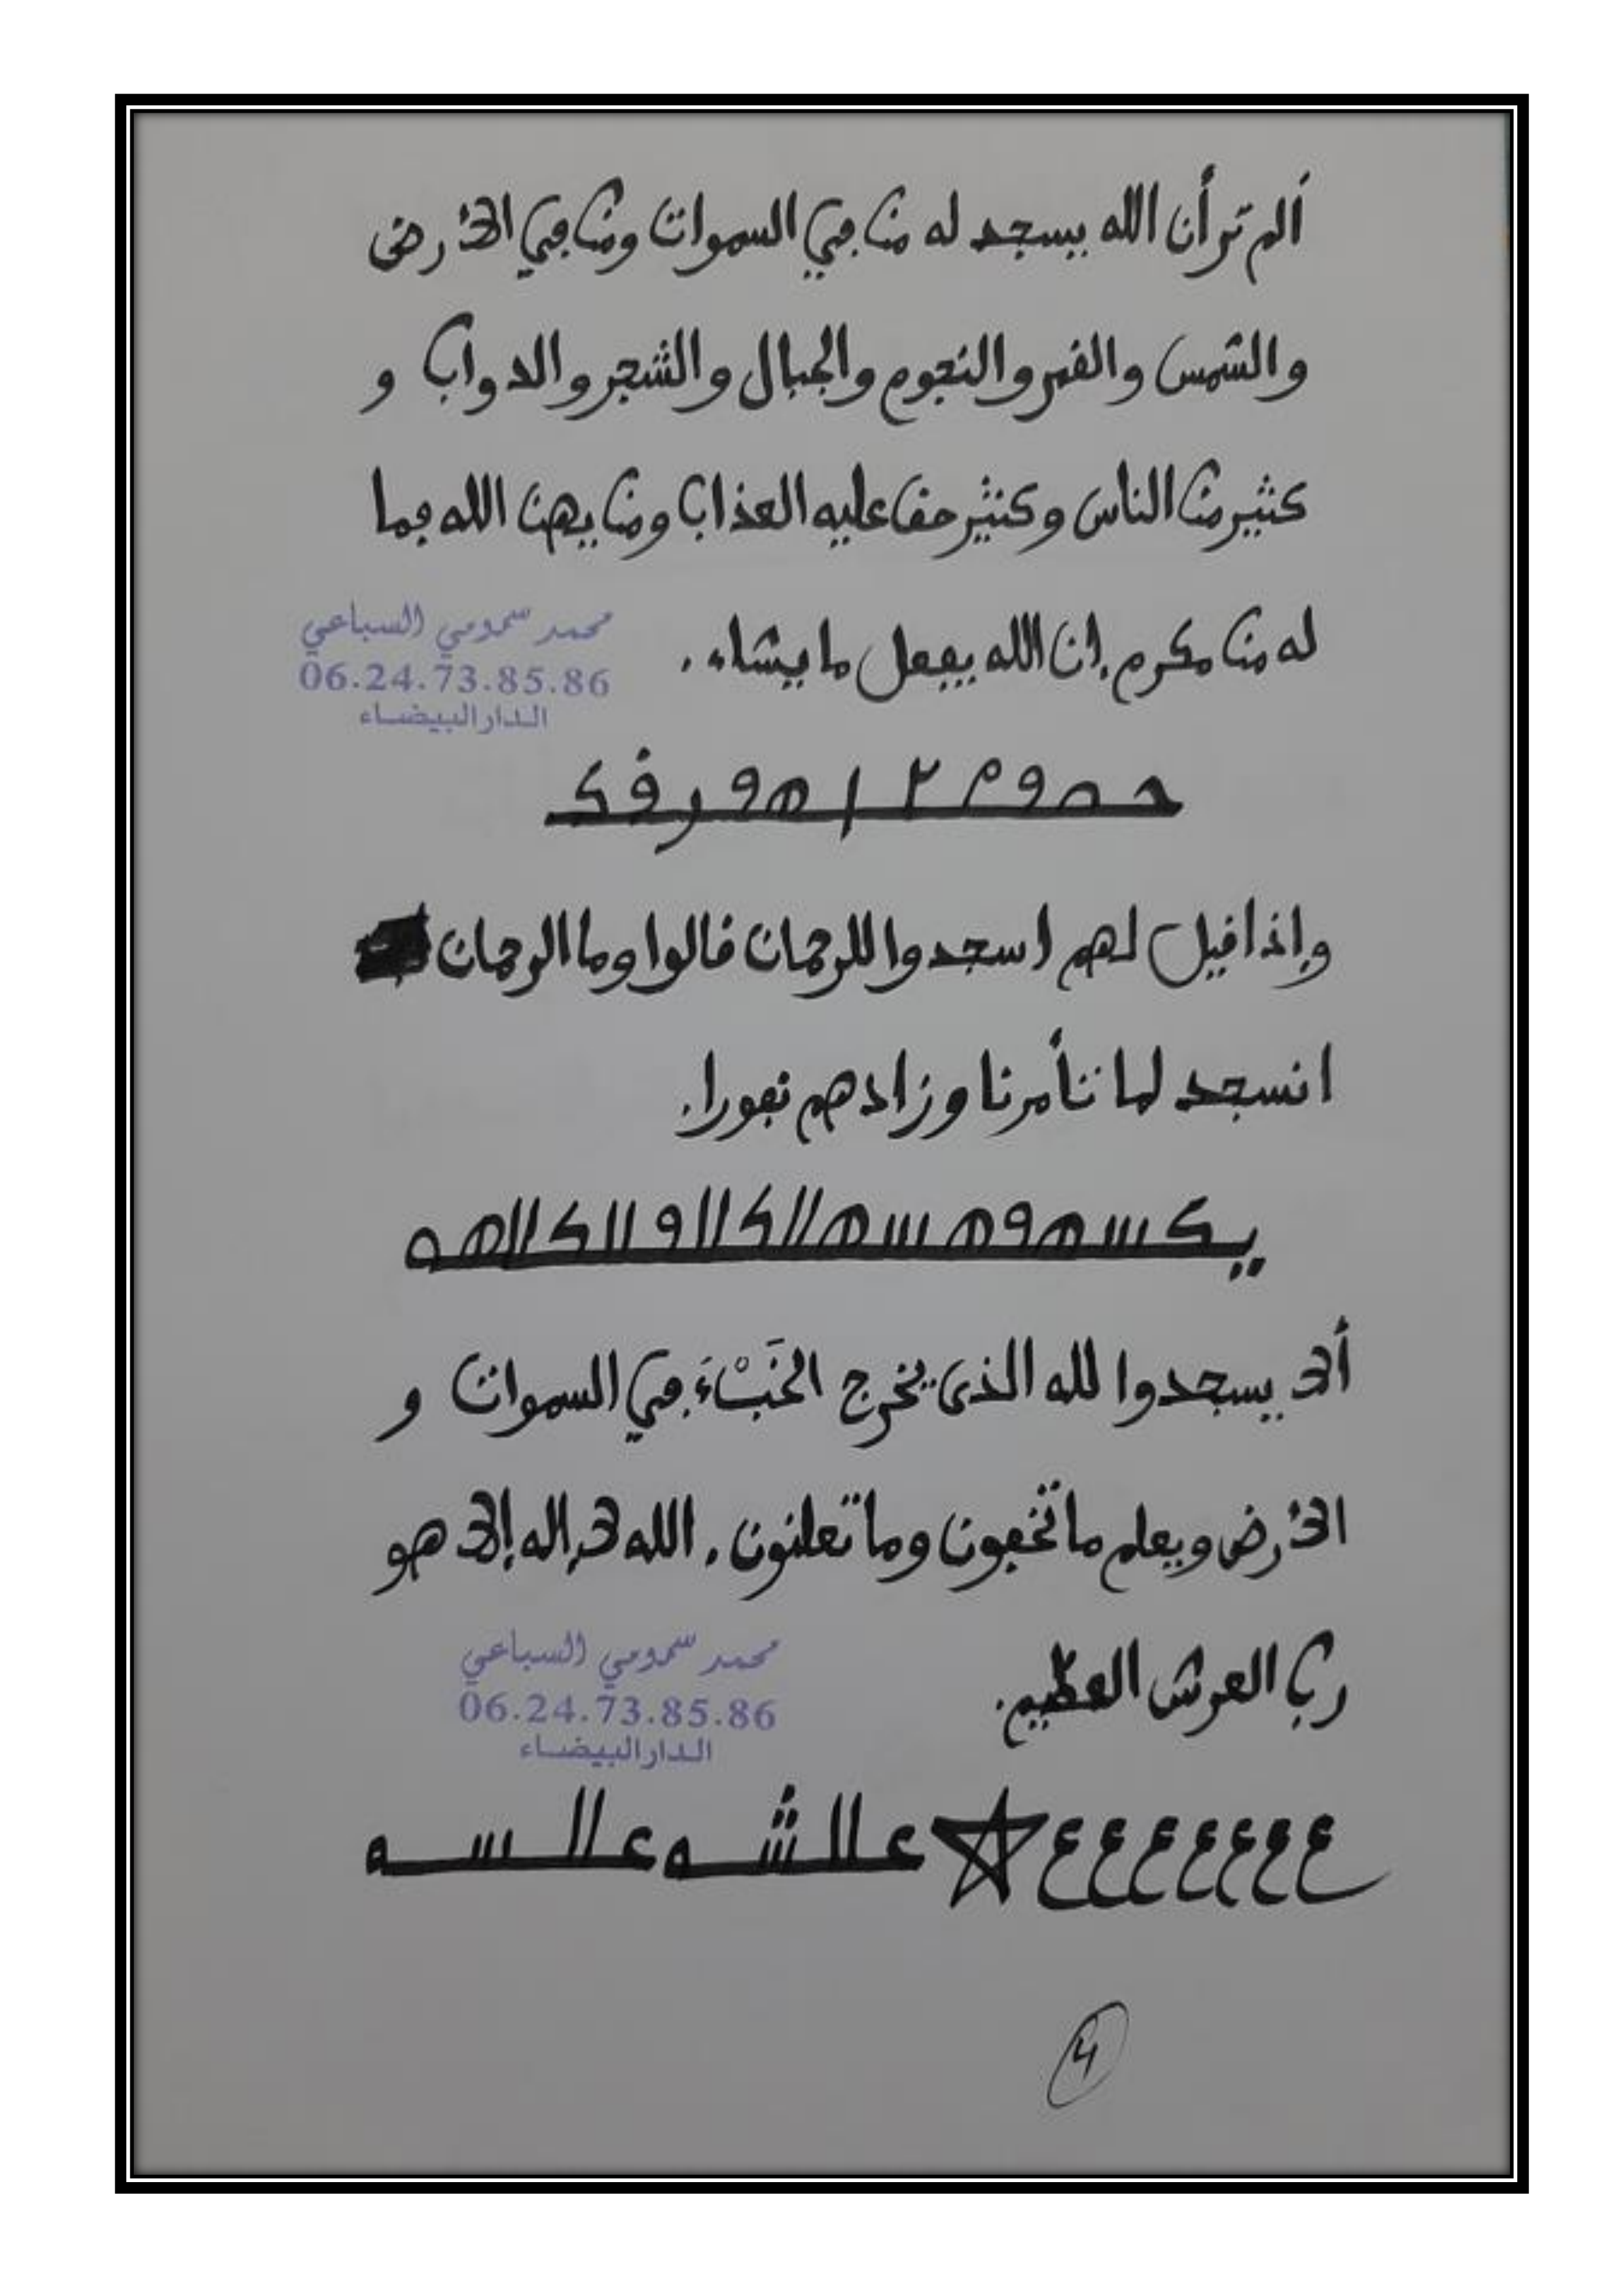 ألم تر أن الله يسجد له من في السموات ومن في الأرض
والشمس والقمر والنجوم والجبال والشجر والدواب و
كثير من الناس وكثير حق عليه العذاب ومن يهن الله فما
له من مكرم إن الله يفعل ما يشاء .
محمد سمومي السباعي
06.24.73.85.86
الدار البيضاء
وإذا قيل لهم اسجدوا للرحمان قالوا وما الرحمان
انسجد لما تأمرنا وزادهم نفورا.
ألا يسجدوا لله الذى يخرج الخَبْءَ في السموات و
الأرض ويعلم ما تخفون وما تعلنون . الله لا إله إلا هو
رب العرش العظيم.
محمد سمومي السباعي
06.24.73.85.86
الدار البيضاء
ع ع ع ع ع ع ع
4